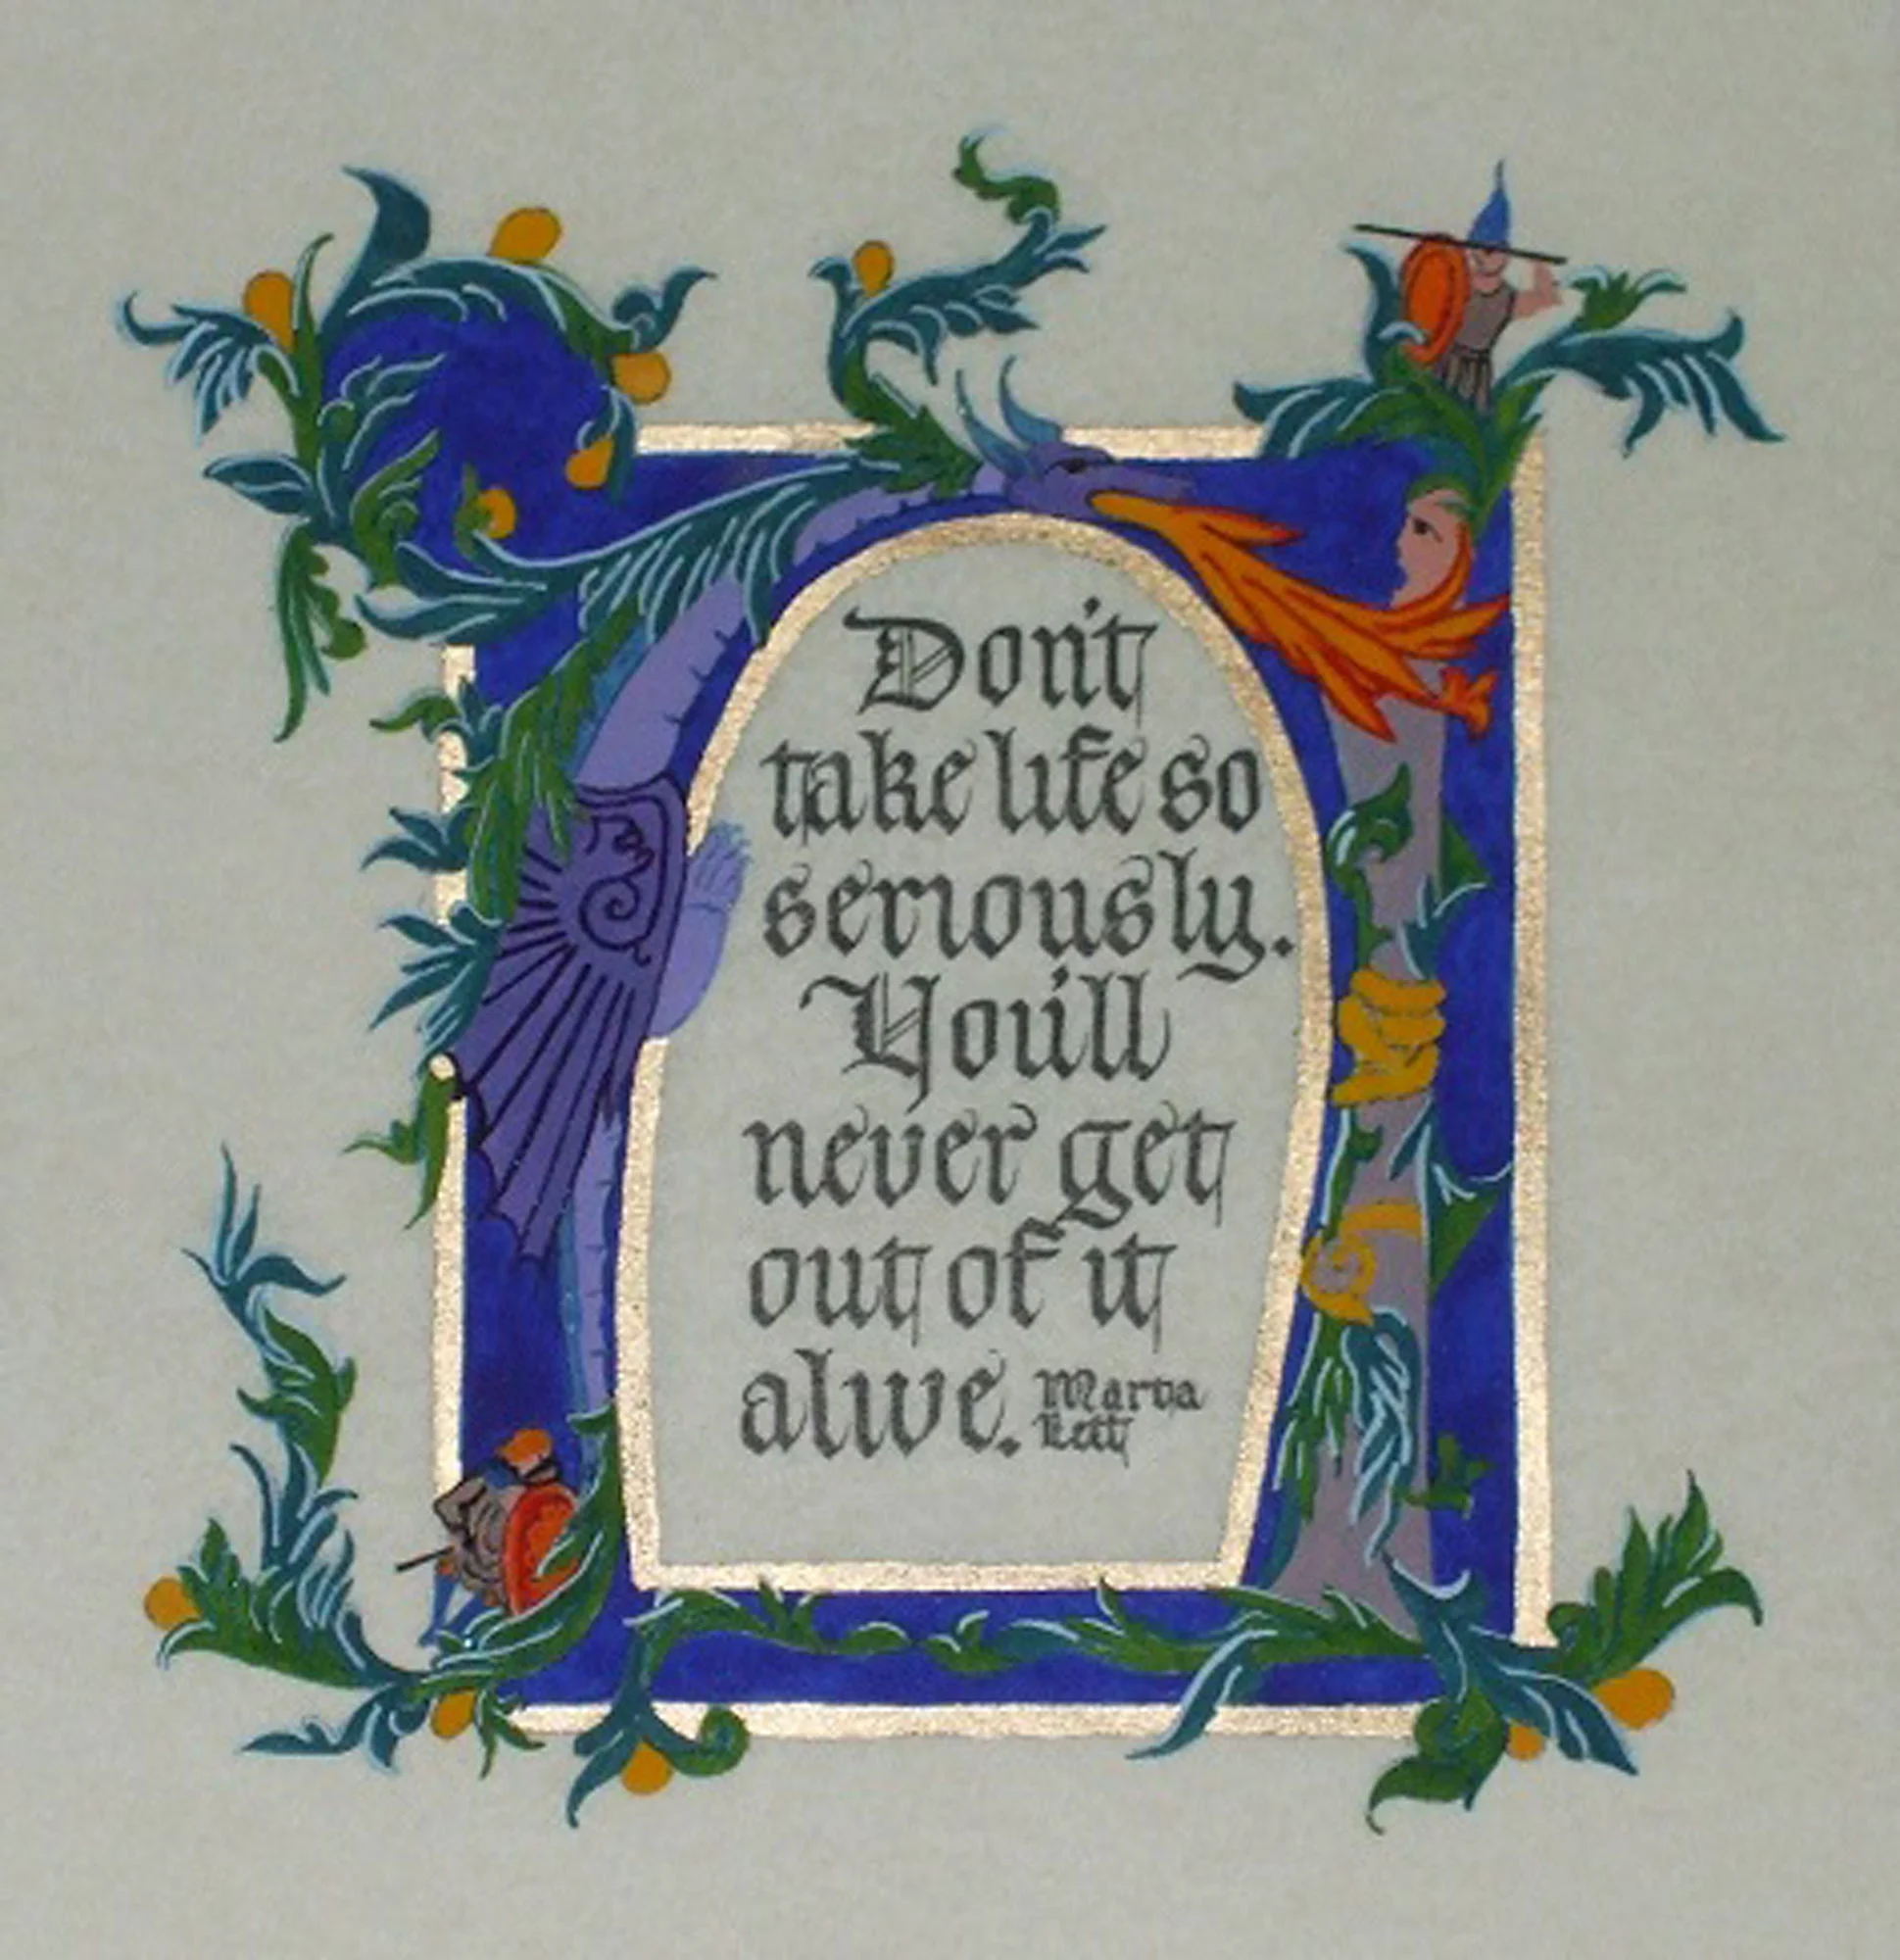 Don't
take life so
seriously.
You'll
never get
out of it
alive.
Martia
Kett